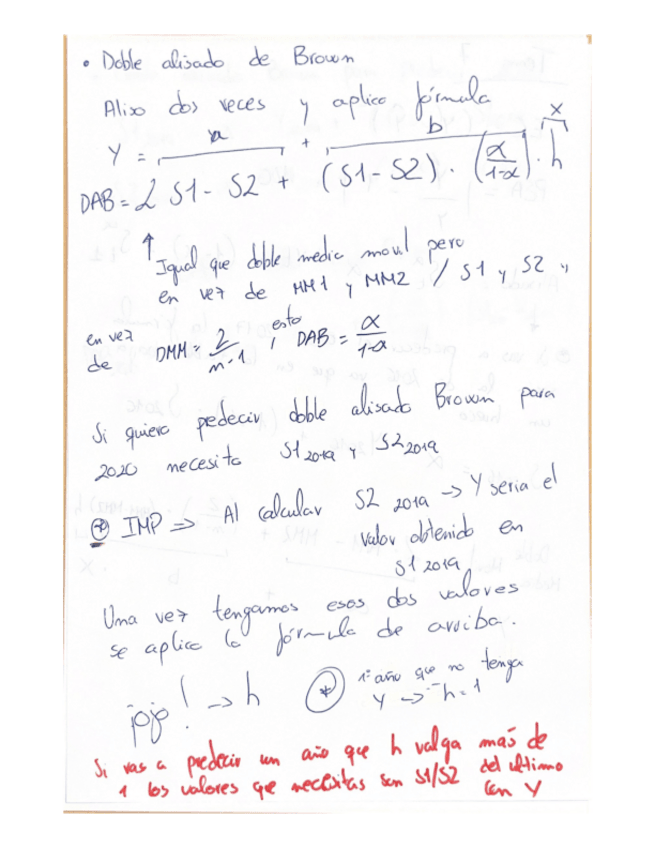 • Doble alisado de Brown
Aliso dos veces y aplico fórmula
a b x
Y = +
DAB = 2 S1 - S2 + (S1 - S2) · (α/1-α) · h
↑ Igual que doble media movil pero
en vez de MM1 y MM2 / S1 y S2 y
en vez de DMM = 2/n-1 , esto DAB = α/1-α
Si quiero predecir doble alisado Brown para
2020 necesito S1 2019 y S2 2019
* IMP => Al calcular S2 2019 → Y seria el
valor obtenido en
S1 2019
Una vez tengamos esos dos valores
se aplica la fórmula de arriba.
¡ojo! → h * 1º año que no tenga
Y → h = 1
Si vas a predecir un año que h valga más de
1 los valores que necesitas son S1/S2 del ultimo
con Y